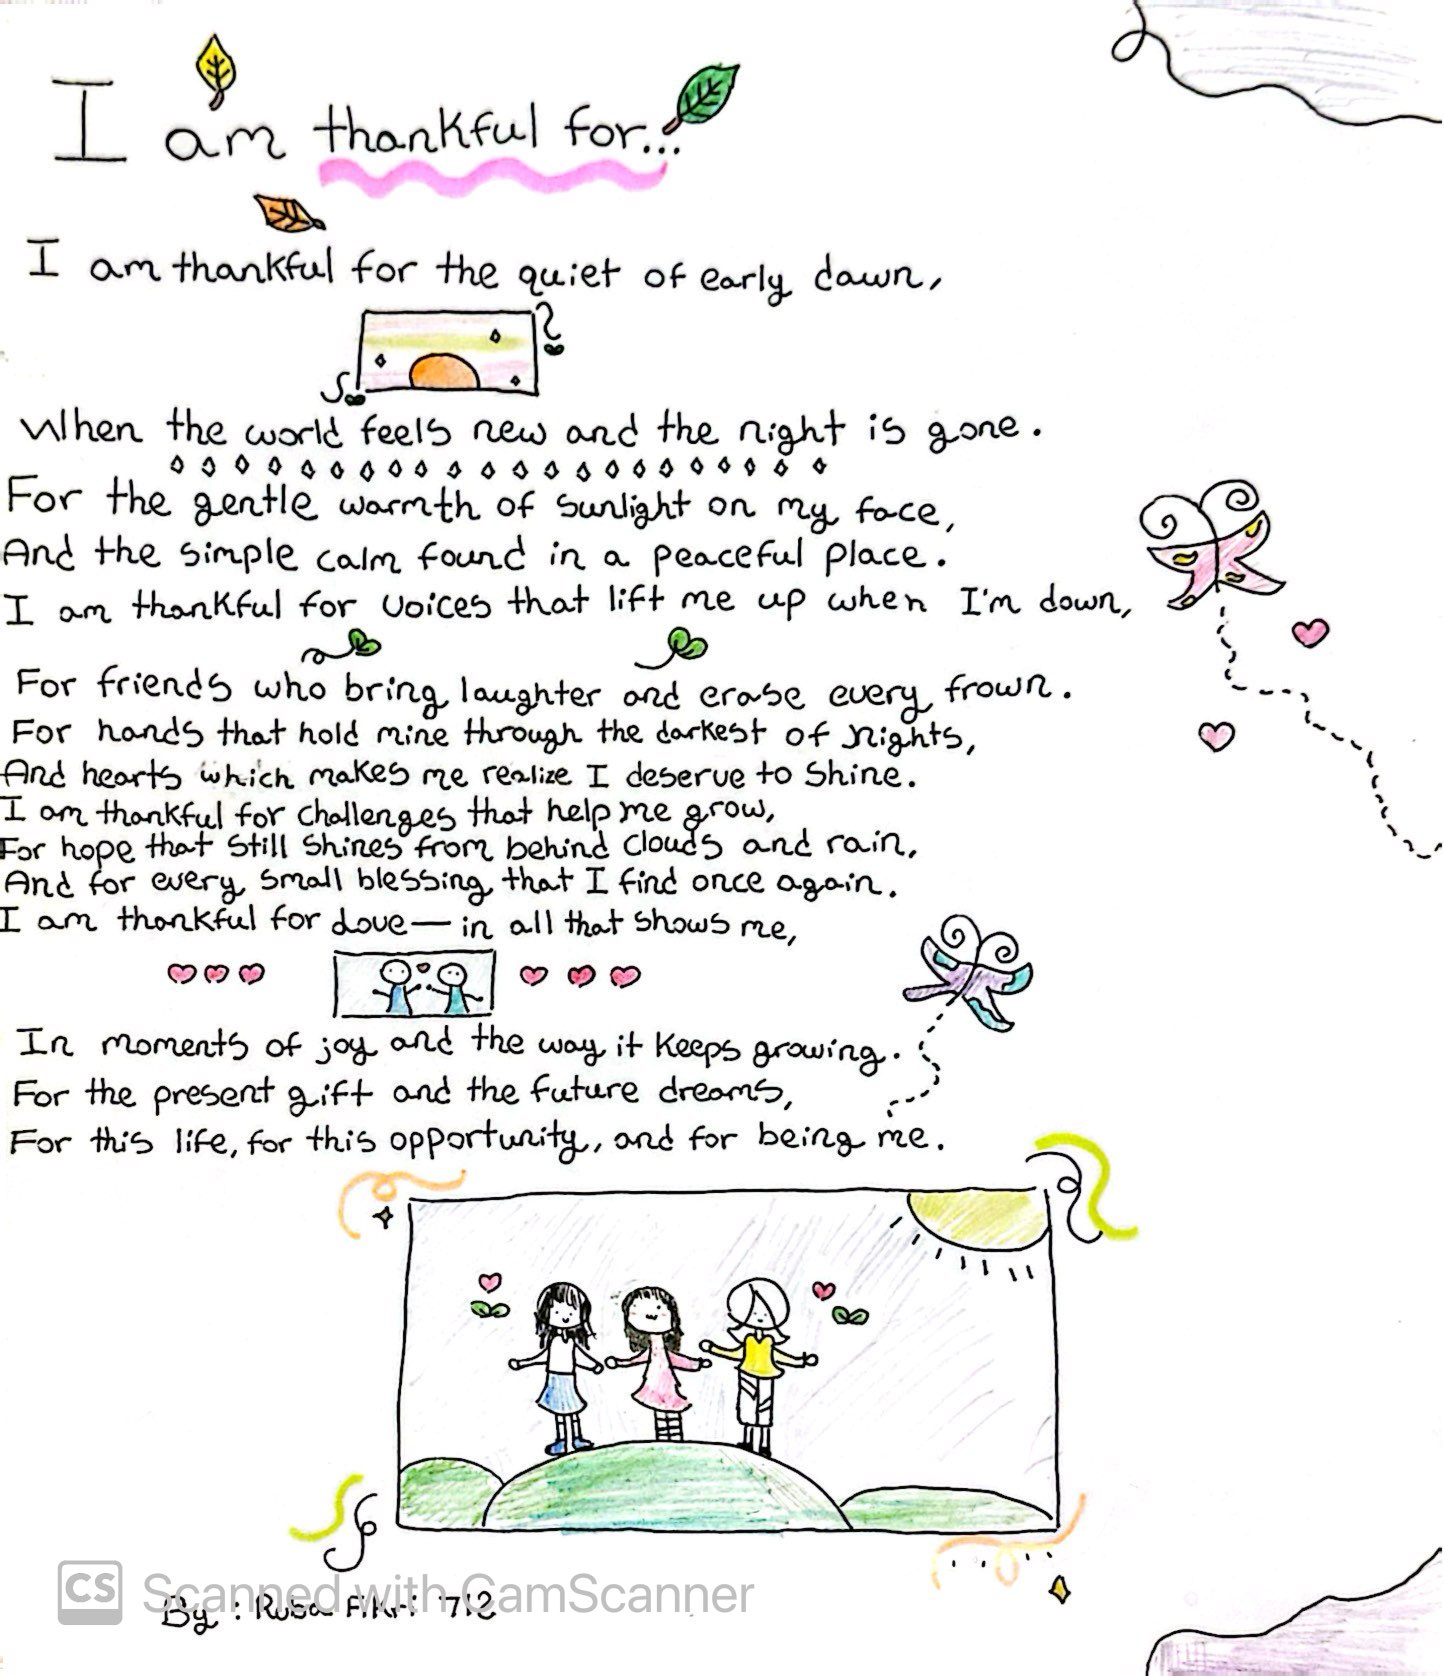 I am thankful for...
I am thankful for the quiet of early dawn,
When the world feels new and the night is gone.
For the gentle warmth of sunlight on my face,
And the simple calm found in a peaceful place.
I am thankful for voices that lift me up when I'm down,
For friends who bring laughter and erase every frown.
For hands that hold mine through the darkest of nights,
And hearts which makes me realize I deserve to shine.
I am thankful for challenges that help me grow,
For hope that still shines from behind clouds and rain,
And for every small blessing that I find once again.
I am thankful for love — in all that shows me,
In moments of joy and the way it keeps growing.
For the present gift and the future dreams,
For this life, for this opportunity, and for being me.
CS Scanned with CamScanner
By: